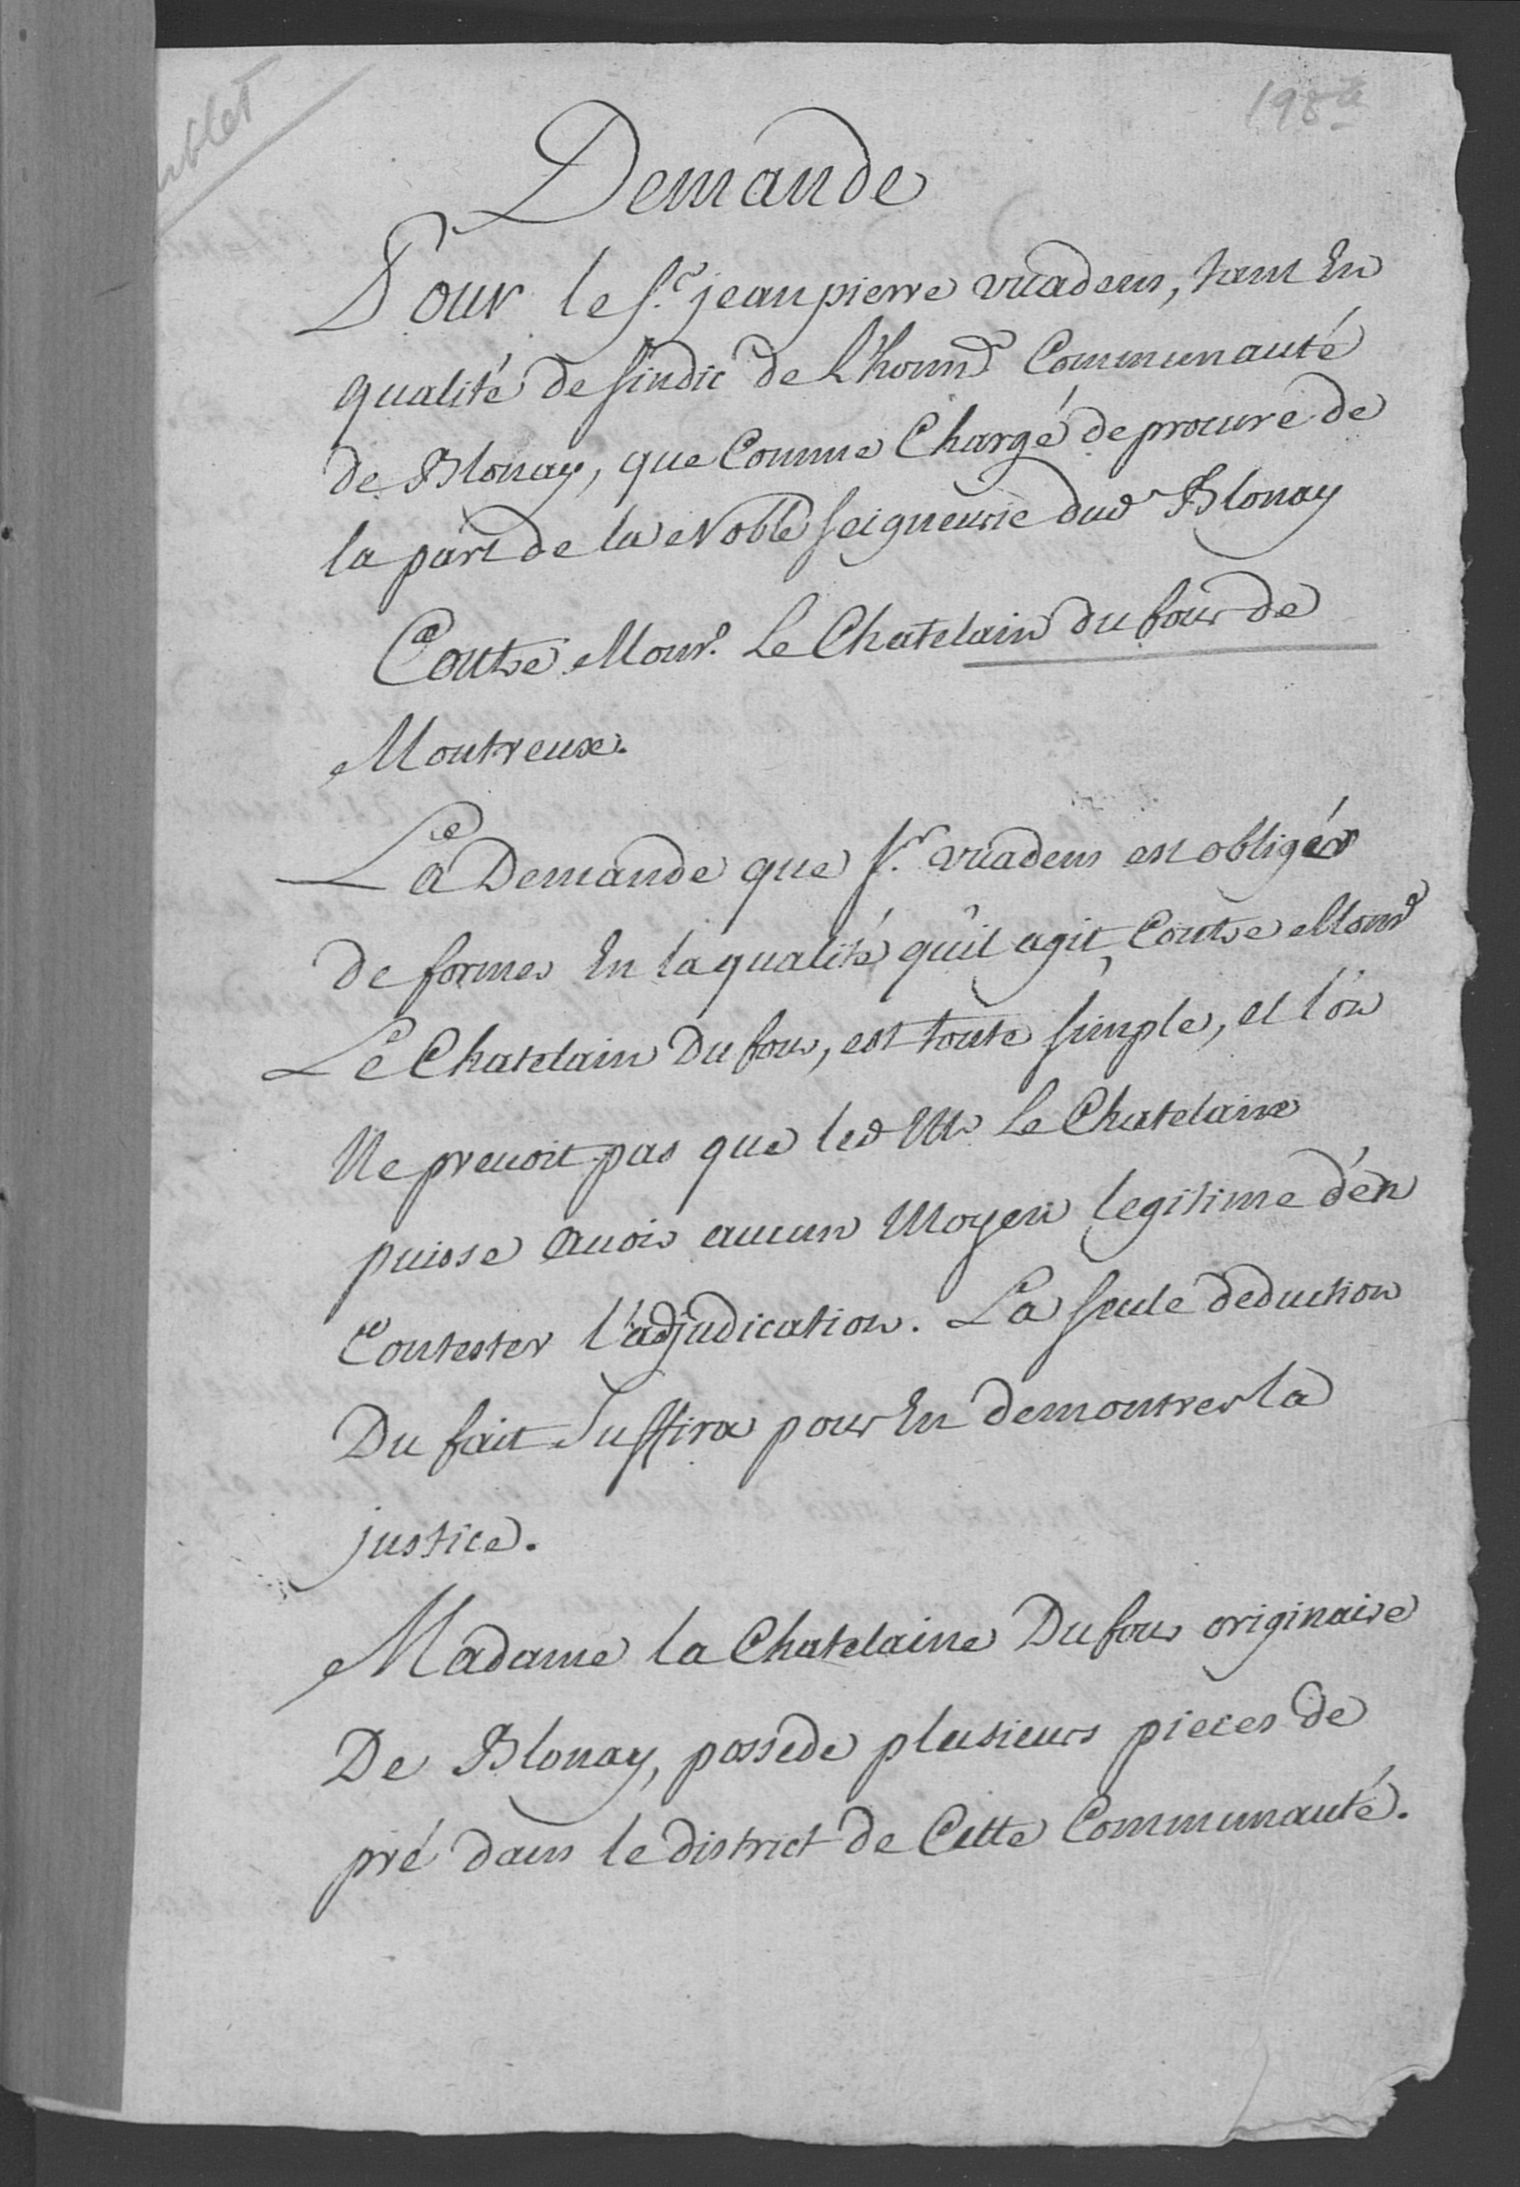 Demande
Pour le Sr. jean pierre vuadens, tant En
qualité de sindic de L'honnd Communauté
de Blonay, que Comme Chargé de procure de
la part de la Noble seigneurie dud Blonay
Contre Monsr. Le Chatelain du four de
Montreux.
La Demande que Sr. vuadens est obligér
de former En la qualité qu'il agit, Contre Monsr
Le Chatelain Du four, est toute simple, et l'on
Ne prevoit pas que led Mr Le Chatelain
puisse avoir aucun Moyen legitime d'en
Contester l'adjudication. La seule deduction
Du fait Suffira pour En demontrer la
justice.
Madame la Chatelaine Du four originaire
De Blonay, possede plusieurs pieces de
pré dans le district de Cette Communauté.